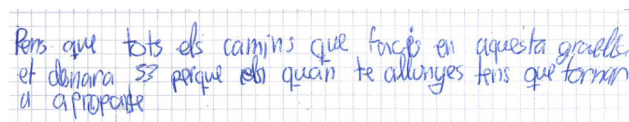 Pens que tots els camins que facis en aquesta graella
et donara 53 perque quan te allunyes tens que tornar
a aproparte